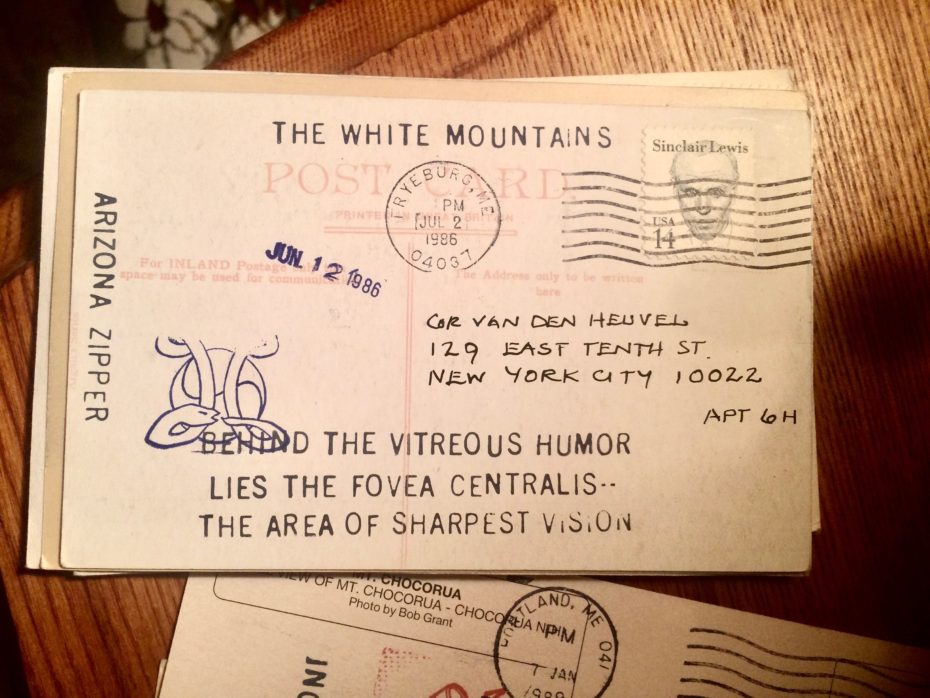 THE WHITE MOUNTAINS
Sinclair Lewis
USA
14
POST CARD
PRINTED IN GREAT BRITAIN
FRYEBURG, ME
PM
JUL 2
1986
04037
JUN. 12 1986
For INLAND Postage
space may be used for
The Address only to be written
here
ARIZONA ZIPPER
COR VAN DEN HEUVEL
129 EAST TENTH ST.
NEW YORK CITY 10022
APT 6H
BEHIND THE VITREOUS HUMOR
LIES THE FOVEA CENTRALIS--
THE AREA OF SHARPEST VISION
MT. CHOCORUA
VIEW OF MT. CHOCORUA - CHOCORUA NH
Photo by Bob Grant
PORTLAND, ME 041
PM
7 JAN